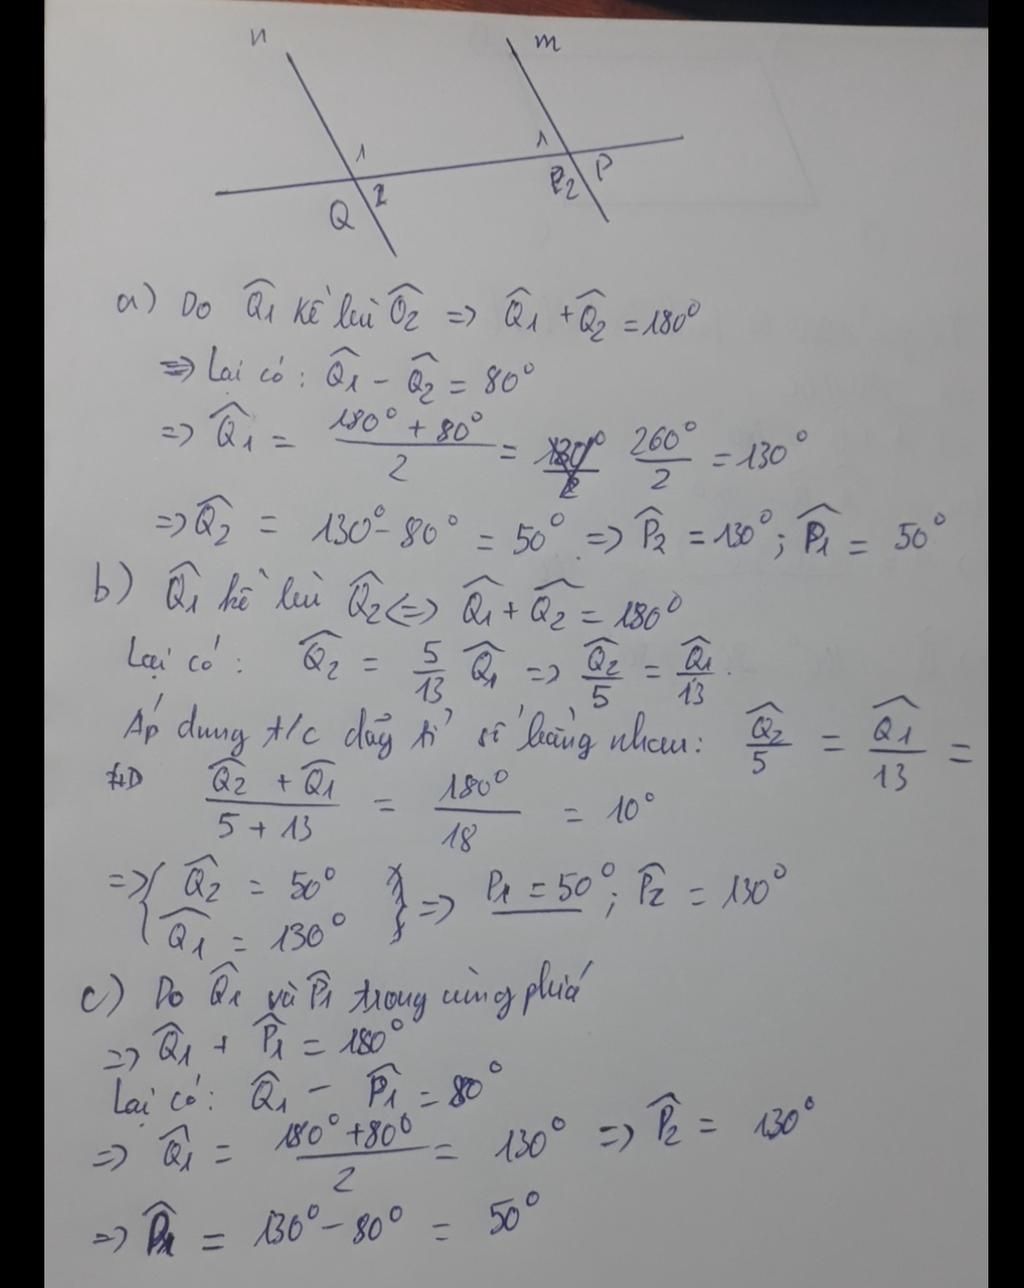 n m
1 1
Q 2 P2 P
a) Do Q̂1 kề bù Q̂2 => Q̂1 + Q̂2 = 180°
=> Lại có: Q̂1 - Q̂2 = 80°
=> Q̂1 = (180° + 80°)/2 = 260°/2 = 130°
=> Q̂2 = 130° - 80° = 50° => P̂2 = 130°; P̂1 = 50°
b) Q̂1 kề bù Q̂2 <=> Q̂1 + Q̂2 = 180°
Lại có: Q̂2 = 5/13 Q̂1 => Q̂2/5 = Q̂1/13.
Áp dụng t/c dãy tỉ số bằng nhau: Q̂2/5 = Q̂1/13 =
(Q̂2 + Q̂1)/(5 + 13) = 180°/18 = 10°
=> { Q̂2 = 50° } => P1 = 50°; P̂2 = 130°
{ Q̂1 = 130°
c) Do Q̂1 và P̂1 trong cùng phía
=> Q̂1 + P̂1 = 180°
Lại có: Q̂1 - P̂1 = 80°
=> Q̂1 = (180° + 80°)/2 = 130° => P̂2 = 130°
=> P̂1 = 130° - 80° = 50°